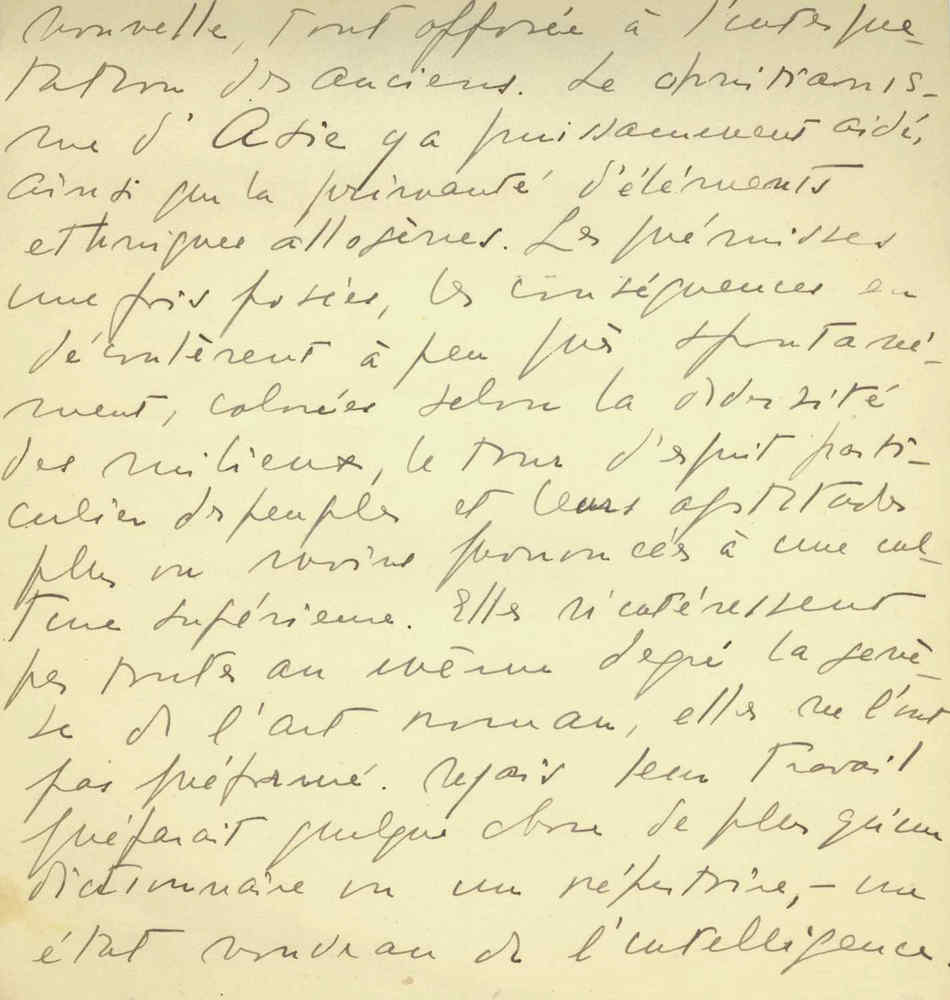 nouvelle, tout opposée à l'interpré-
tation des anciens. Le christianis-
me d'Asie y a puissamment aidé,
ainsi que la primauté d'éléments
ethniques allogènes. Les prémisses
une fois posées, les conséquences en
découlèrent à peu près spontané-
ment, colorées selon la diversité
des milieux, le tour d'esprit parti-
culier des peuples et leurs aptitudes
plus ou moins prononcées à une cul-
ture supérieure. Elles n'intéressent
pas toutes au même degré la genè-
se de l'art roman, elles ne l'ont
pas préformé. Mais leur travail
préparait quelque chose de plus qu'un
dictionnaire ou un répertoire, – un
état nouveau de l'intelligence.